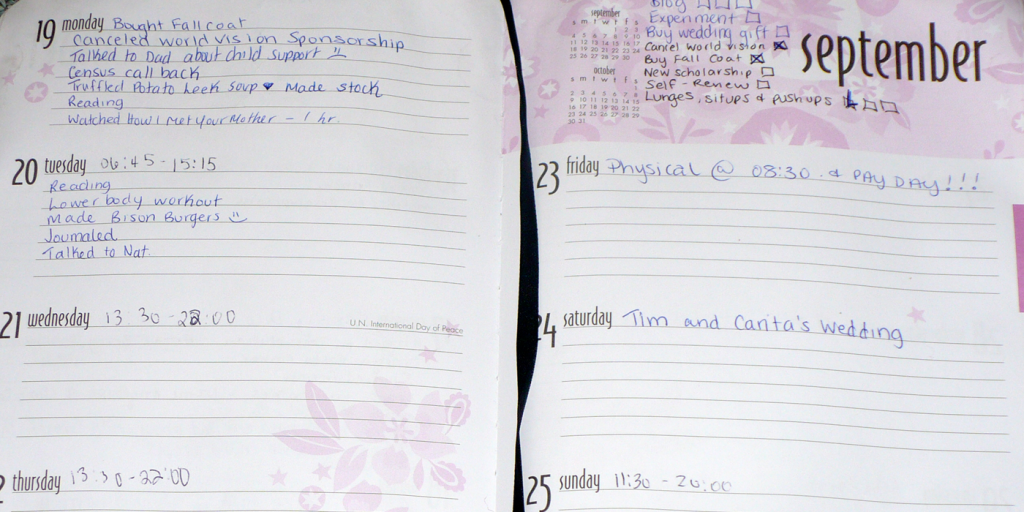 19 monday Bought Fall coat
Canceled world vision Sponsorship
Talked to Dad about child support
Census call back
Truffled Potato Leek Soup ♥ Made stock
Reading
Watched How I Met Your Mother - 1 hr.
20 tuesday 06:45 - 15:15
Reading
Lower body workout
Made Bison Burgers
Journaled
Talked to Nat.
21 wednesday 13:30 - 22:00
U.N. International Day of Peace
thursday 13:30 - 22:00
september
s m t w t f s
october
s m t w t f s
Blog
Experiment
Buy wedding gift
Cancel World Vision
Buy Fall Coat
New scholarship
Self-Renew
Lunges, situps & pushups
september
23 friday Physical @ 08:30 & PAY DAY!!!
24 saturday Tim and Carita's Wedding
25 sunday 11:30 - 20:00